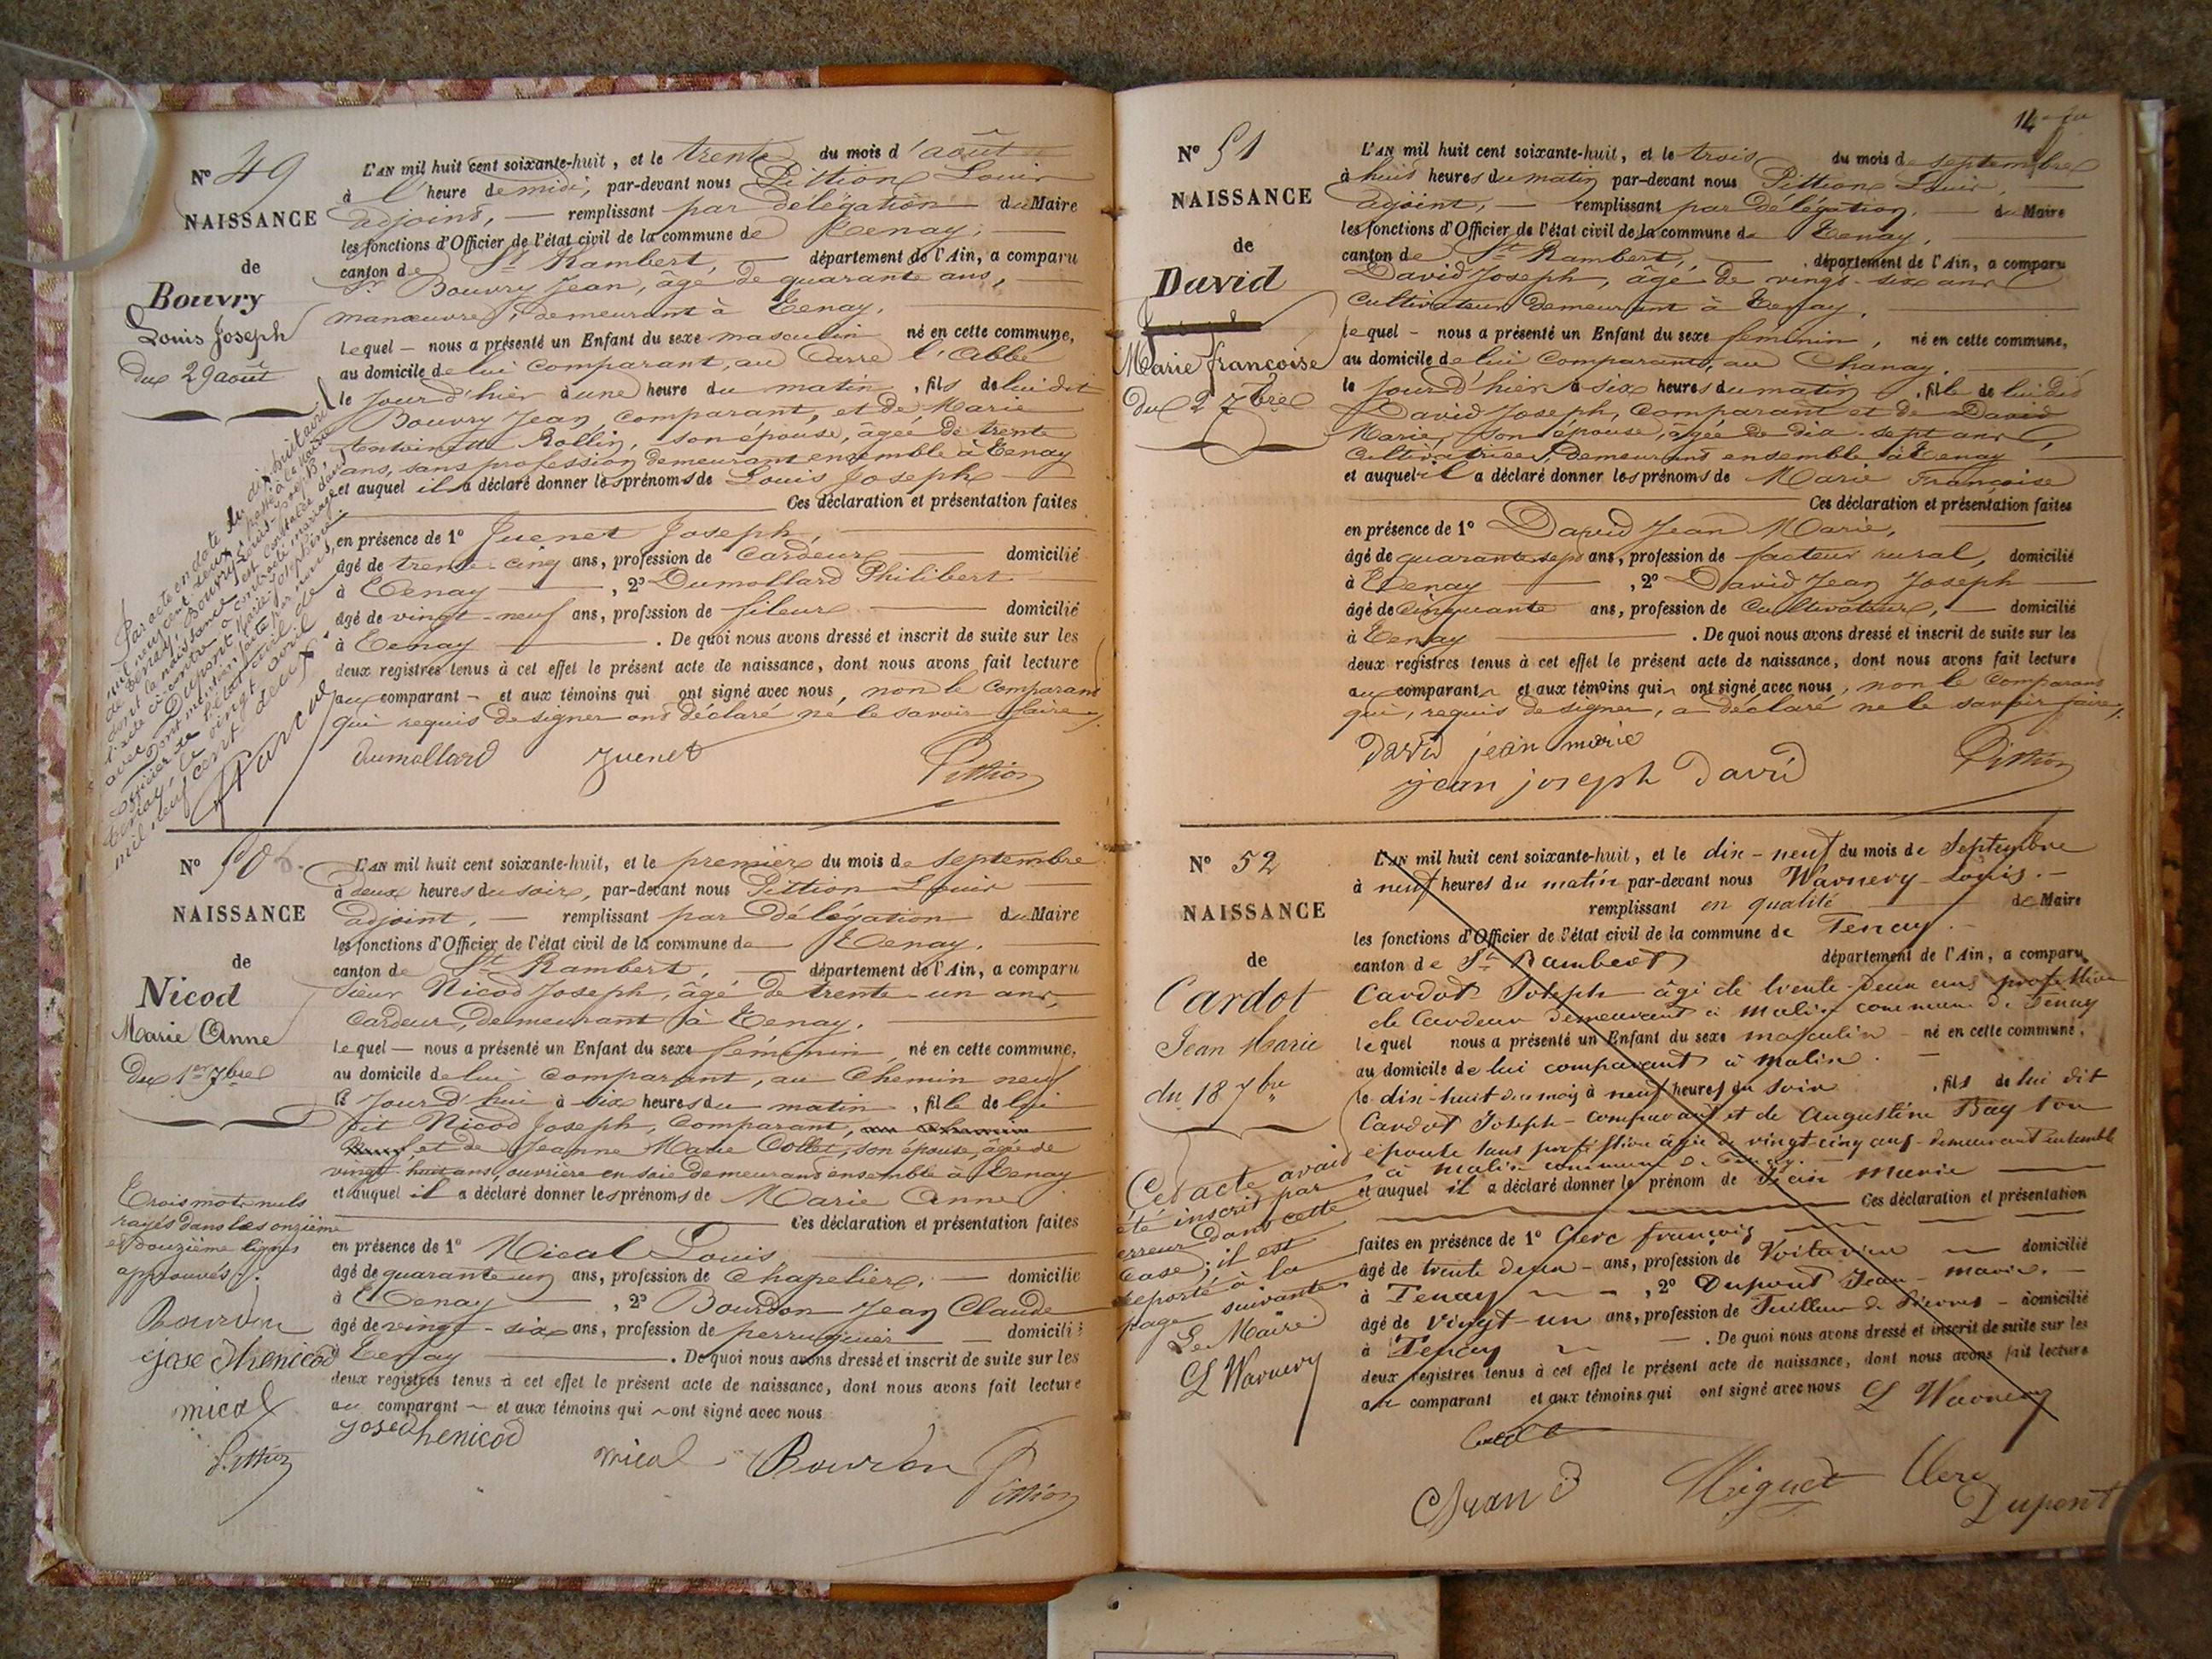 N° 49
NAISSANCE
de
Bouvry
Louis Joseph
du 29 août
L'AN mil huit cent soixante-huit, et le trente du mois d'août
à l'heure de midi, par-devant nous Pittion Louis
adjoint, — remplissant par délégation du Maire
les fonctions d'Officier de l'état civil de la commune de Tenay,
canton de St Rambert, — département de l'Ain, a comparu
Sr Bouvry Jean, âgé de quarante ans,
manœuvre, demeurant à Tenay.
lequel — nous a présenté un Enfant du sexe masculin né en cette commune,
au domicile de lui comparant, au Carre l'Abbé
le jour d'hier à une heure du matin, fils de lui dit
Bouvry Jean, comparant, et de Marie
Antoinette Rollin, son épouse, âgée de trente
ans, sans profession demeurant ensemble à Tenay
et auquel il a déclaré donner les prénoms de Louis Joseph
Ces déclaration et présentation faites
en présence de 1° Juenet Joseph,
âgé de trente-cinq ans, profession de cardeur — domicilié
à Tenay, 2° Dumollard Philibert
âgé de vingt-neuf ans, profession de fileur — domicilié
à Tenay — . De quoi nous avons dressé et inscrit de suite sur les
deux registres tenus à cet effet le présent acte de naissance, dont nous avons fait lecture
au comparant — et aux témoins qui ont signé avec nous, non le comparant
qui requis de signer ont déclaré ne le savoir faire.
dumollard Juenet Pittion
Par acte en date du dix huit avril
mil neuf cent deux, passé à la Mairie
de Tenay, Bouvry Louis-Joseph,
dont la naissance est constatée dans
l'acte ci-contre a contracté mariage
avec Dupont Marie Joséphine.
Dont mention faite par nous,
officier de l'état civil de
Tenay, le vingt avril
mil neuf cent deux.
N° 50
NAISSANCE
de
Nicod
Marie Anne
du 1er 7bre
L'AN mil huit cent soixante-huit, et le premier du mois de septembre
à deux heures du soir, par-devant nous Pittion Louis
adjoint, — remplissant par délégation du Maire
les fonctions d'Officier de l'état civil de la commune de Tenay.
canton de St Rambert, — département de l'Ain, a comparu
sieur Nicod Joseph, âgé de trente-un ans,
cardeur, demeurant à Tenay.
lequel — nous a présenté un Enfant du sexe féminin, né en cette commune,
au domicile de lui comparant, au Chemin neuf
le jour d'hui à six heures du matin, fille de lui
dit Nicod Joseph, comparant, au chemin
neuf et de Jeanne Marie Collet, son épouse, âgée de
vingt-huit ans, ouvrière en soie demeurant ensemble à Tenay
et auquel il a déclaré donner les prénoms de Marie Anne
Ces déclaration et présentation faites
en présence de 1° Micol Louis
âgé de quarante un ans, profession de chapelier, — domicilié
à Tenay, 2° Bourdon Jean Claude
âgé de vingt-six ans, profession de perruquier — domicilié
à Tenay — . De quoi nous avons dressé et inscrit de suite sur les
deux registres tenus à cet effet le présent acte de naissance, dont nous avons fait lecture
au comparant — et aux témoins qui ont signé avec nous
Trois mots nuls
rayés dans les onzième
et douzième lignes
approuvés.
Bourdon
micol
Pittion
micol Bourdon Pittion
14
N° 51
NAISSANCE
de
David
Marie françoise
du 2 7bre
L'AN mil huit cent soixante-huit, et le trois du mois de septembre
à huit heures du matin par-devant nous Pittion Louis,
adjoint, — remplissant par délégation, — du Maire
les fonctions d'Officier de l'état civil de la commune de Tenay,
canton de St Rambert, — département de l'Ain, a comparu
David Joseph, âgé de vingt-six ans
cultivateur demeurant à Tenay.
lequel — nous a présenté un Enfant du sexe féminin, né en cette commune,
au domicile de lui comparant, au Chanay.
le jour d'hier à six heures du matin, fille de lui dit
David Joseph, comparant et de David
Marie, son épouse, âgée de dix-sept ans,
cultivatrice, demeurant ensemble à Tenay
et auquel il a déclaré donner les prénoms de Marie Françoise
Ces déclaration et présentation faites
en présence de 1° David Jean Marie,
âgé de quarante sept ans, profession de facteur rural, domicilié
à Tenay, 2° David Jean Joseph
âgé de cinquante ans, profession de cultivateur, — domicilié
à Tenay — . De quoi nous avons dressé et inscrit de suite sur les
deux registres tenus à cet effet le présent acte de naissance, dont nous avons fait lecture
au comparant et aux témoins qui ont signé avec nous, non le comparant
qui, requis de signer, a déclaré ne le savoir faire.
David jean marie
jean joseph David Pittion
N° 52
NAISSANCE
de
Cardot
Jean Marie
du 18 7bre
L'AN mil huit cent soixante-huit, et le dix-neuf du mois de Septembre
à neuf heures du matin par-devant nous Warnery Louis. —
remplissant en qualité de Maire
les fonctions d'Officier de l'état civil de la commune de Tenay.
canton de St Rambert département de l'Ain, a comparu
Cardot Joseph âgé de trente-deux ans profession
de Cardeur demeurant à Malix commune de Tenay
lequel nous a présenté un Enfant du sexe masculin né en cette commune,
au domicile de lui comparant à Malix.
le dix-huit du mois à neuf heures du soir, fils de lui dit
Cardot Joseph-comparant et de Augustine Bay son
épouse sans profession âgée de vingt-cinq ans-demeurant ensemble
à Malix commune de Tenay.
et auquel il a déclaré donner le prénom de Jean Marie
Ces déclaration et présentation
faites en présence de 1° Clerc françois
âgé de trente deux — ans, profession de Voiturier — domicilié
à Tenay, 2° Dupont Jean-marie.
âgé de vingt-un ans, profession de Tailleur de Pierres — domicilié
à Tenay — . De quoi nous avons dressé et inscrit de suite sur les
deux registres tenus à cet effet le présent acte de naissance, dont nous avons fait lecture
au comparant et aux témoins qui ont signé avec nous L Warnery
Cet acte avait
été inscrit par
erreur dans cette
case; il est
reporté à la
page suivante
Le Maire
L Warnery
Miguet Clerc
Dupont